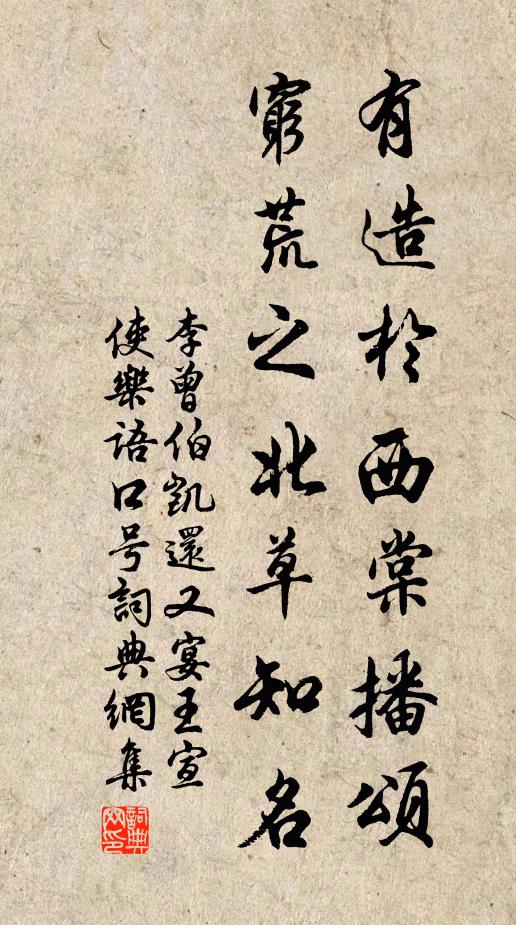 有造於西棠播頌
窮荒之北草知名
李曾伯凱還又宴王宣
使樂語口号詞典網集
詞典
网印